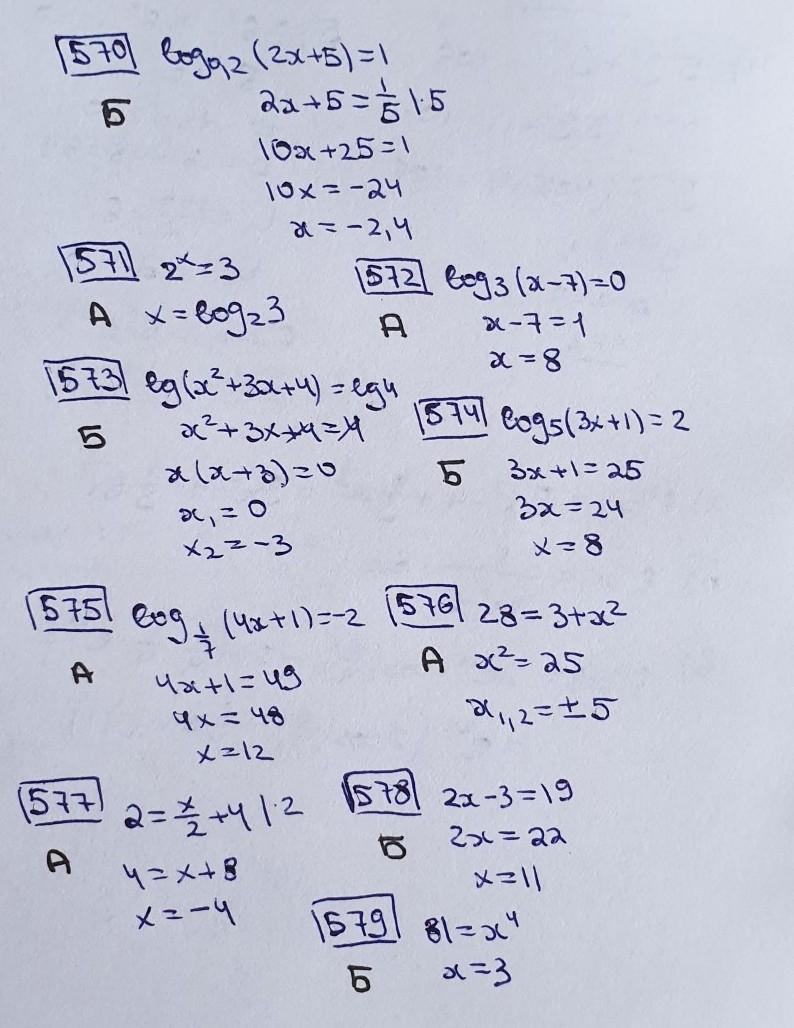 570 log₀,₂(2x+5)=1
Б 2x+5=1/5 |·5
10x+25=1
10x=-24
x=-2,4
571 2ˣ=3
А x=log₂3
572 log₃(x-7)=0
А x-7=1
x=8
573 lg(x²+3x+4)=lg4
Б x²+3x+4=4
x(x+3)=0
x₁=0
x₂=-3
574 log₅(3x+1)=2
Б 3x+1=25
3x=24
x=8
575 log₁/₇(4x+1)=-2
А 4x+1=49
4x=48
x=12
576 28=3+x²
А x²=25
x₁,₂=±5
577 2=x/2+4 |·2
А 4=x+8
x=-4
578 2x-3=19
Б 2x=22
x=11
579 81=x⁴
Б x=3